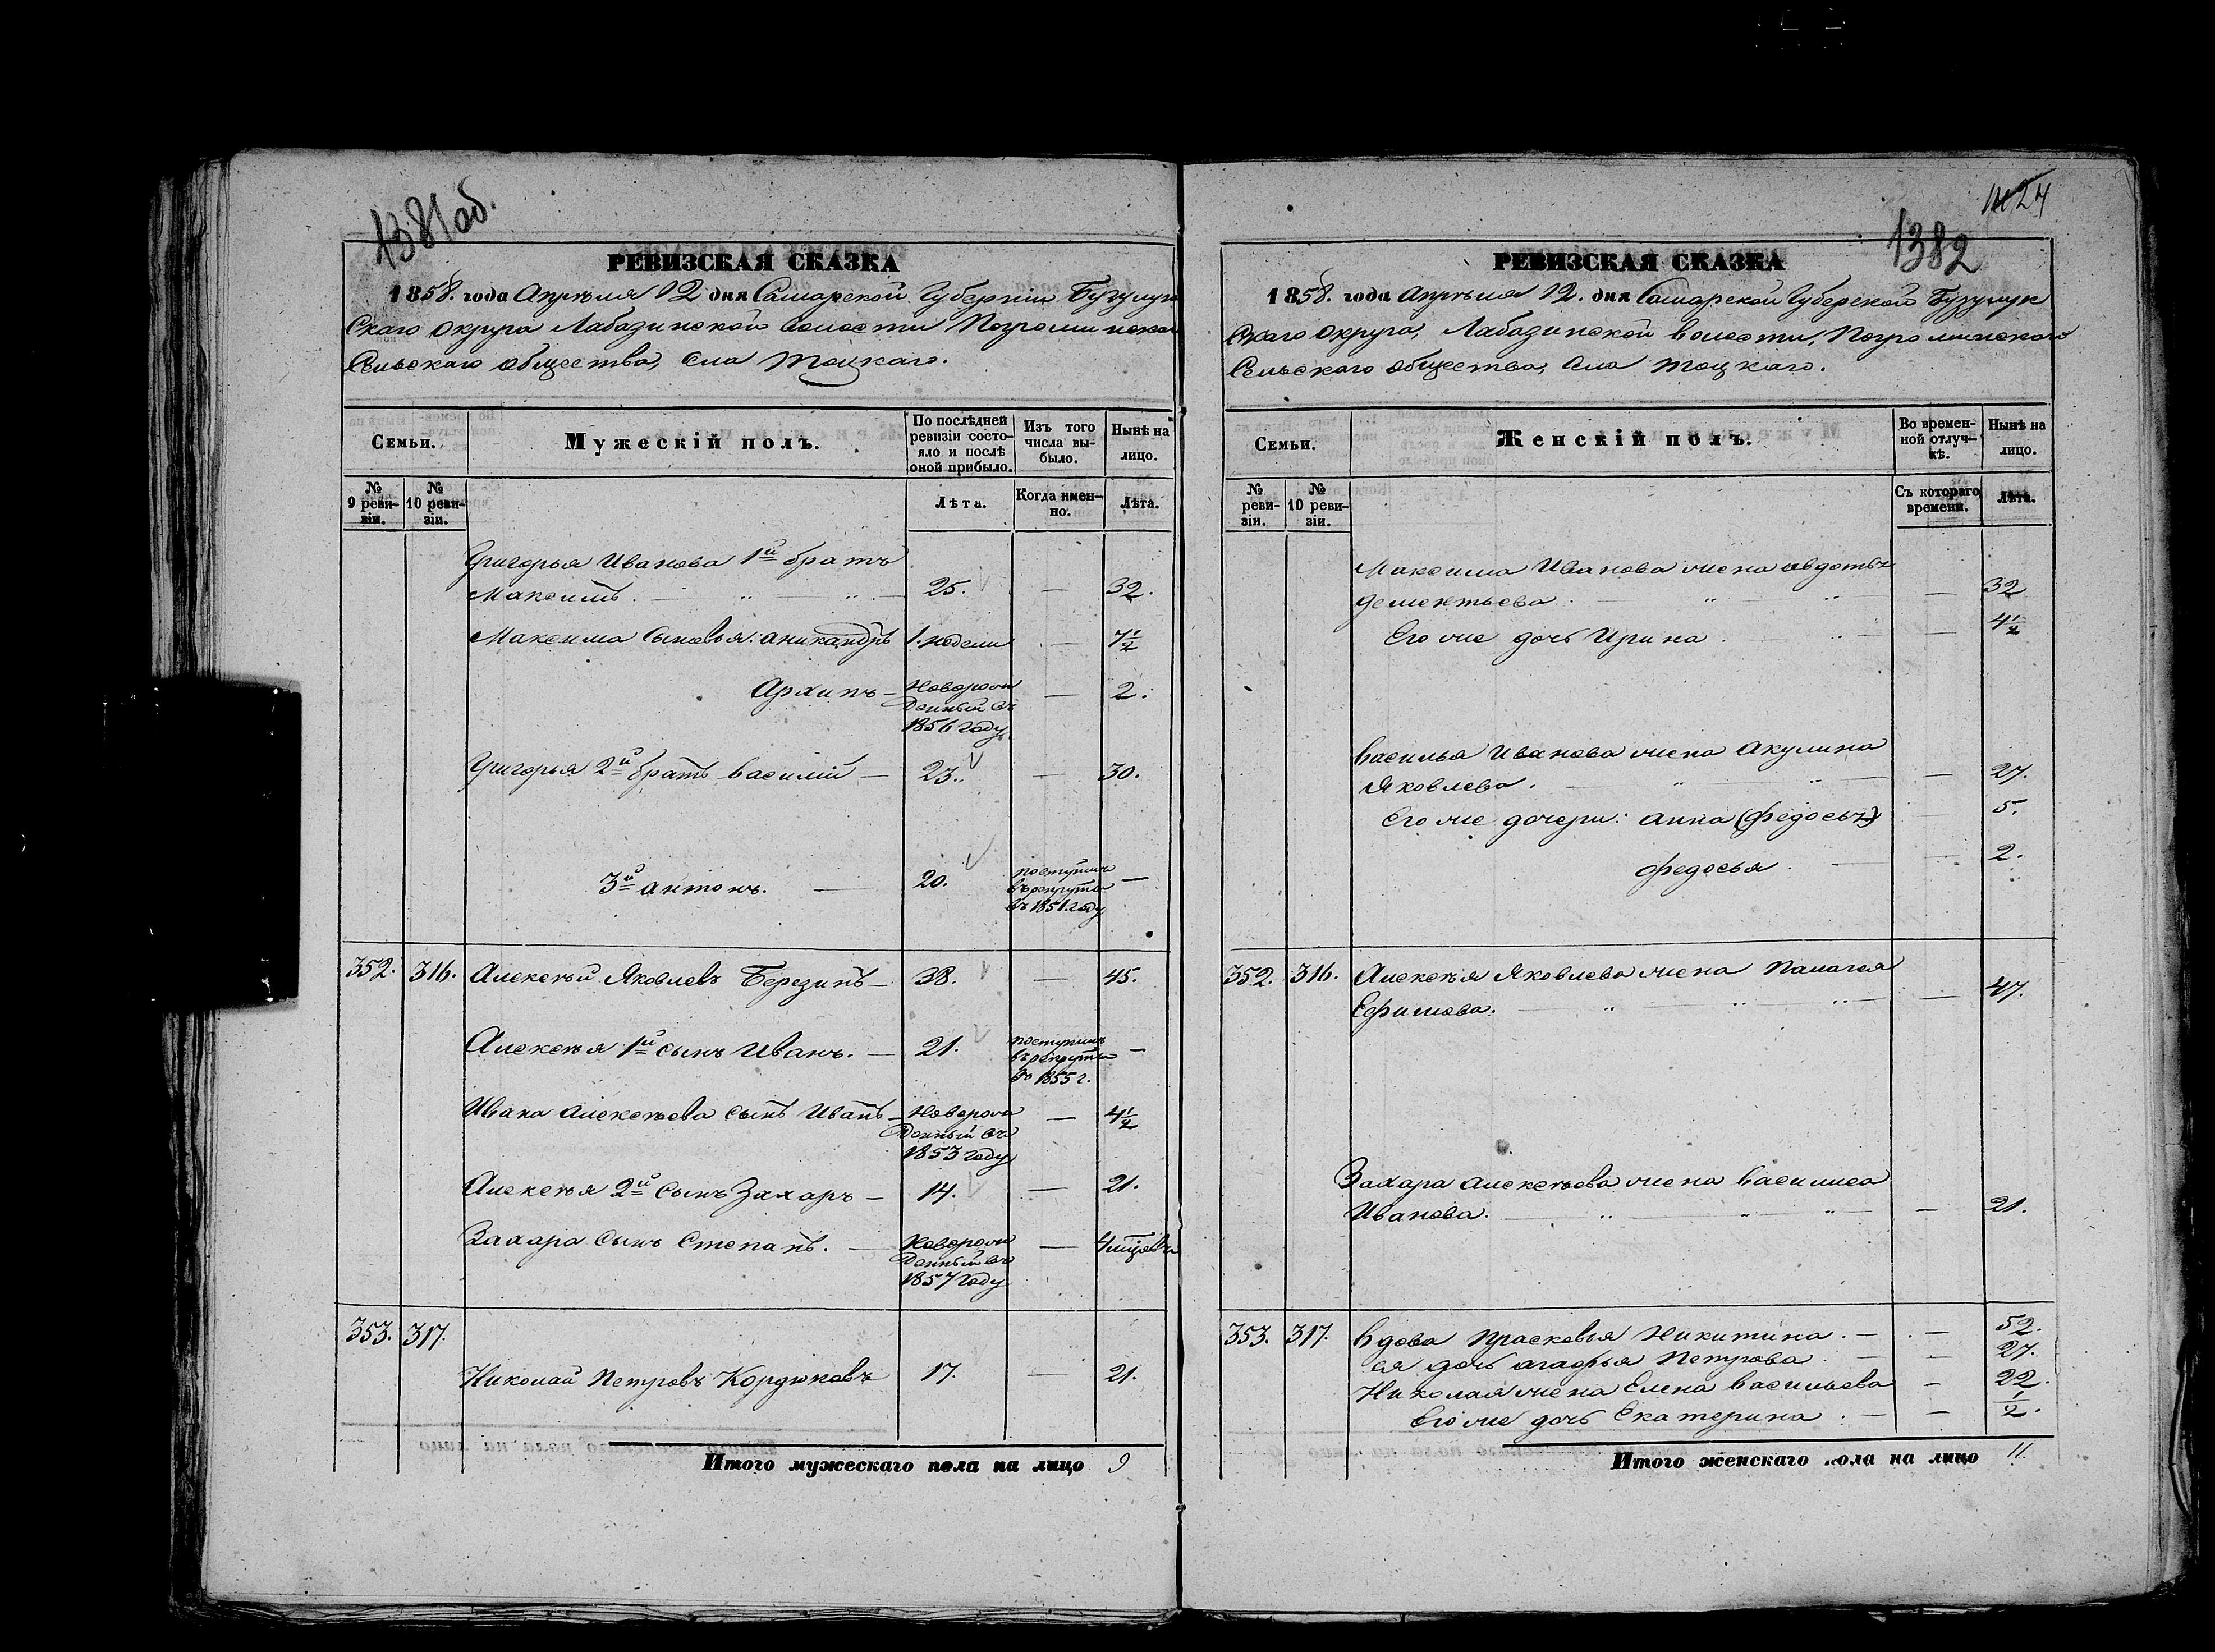 1381 об.
РЕВИЗСКАЯ СКАЗКА
1858. года Апрѣля 12 дня Самарской Губерніи Бузулук
скаго округа Лабазинской волости Погроминскаго
Сельскаго общества, села Тоцкаго.
Семьи.
Мужескій полъ.
По послѣдней ревизіи состояло и послѣ оной прибыло.
Изъ того числа выбыло.
Нынѣ на лицо.
№ 9 ревизіи.
№ 10 ревизіи.
Лѣта.
Когда именно.
Лѣта.
Григорья Иванова 1й братъ
Максимъ. 25. — 32.
Максима сыновья: Аникандръ 1. недели — 7 1/2
Архипъ — Новорож
денный въ
1856 году — 2.
Григорья 2й братъ Василій — 23. — 30.
3й Антонъ. — 20. поступилъ
въ рекруты
въ 1851. году —
352. 316. Алексѣй Яковлевъ Березинъ — 38. — 45.
Алексѣя 1й сынъ Иванъ. — 21. поступилъ
въ рекруты
въ 1855 г. —
Ивана Алексѣева сынъ Иванъ — Новорож
денный въ
1853 году — 4 1/2
Алексѣя 2й сынъ Захаръ — 14. — 21.
Захара сынъ Степанъ. — Новорож
денный въ
1857 году — 4 мцовъ
353. 317.
Николай Петровъ Кордюковъ 17. — 21.
Итого мужескаго пола на лицо 9
24
1382
РЕВИЗСКАЯ СКАЗКА
1858. года Апрѣля 12. дня Самарской Губерской Бузулук
скаго округа, Лабазинской волости, Погроминскаго
Сельскаго общества, села Тоцкаго.
Семьи.
Женскій полъ.
Во временной отлучкѣ.
Нынѣ на лицо.
№ ревизіи.
№ 10 ревизіи.
Съ котораго времени.
Лѣта.
Максима Иванова жена Авдотья
Дементьева. — 32
Его же дочь Ирина. — 4 1/2
Василья Иванова жена Акулина
Яковлева. — 27.
Его же дочери: Анна (Федосья) 5.
Федосья. — 2.
352. 316. Алексѣя Яковлева жена Палагея
Ефимова. — 47.
Захара Алексѣева жена Василиса
Иванова. — 21.
353. 317. Вдова Прасковья Никитина. — 52.
ея дочь Агафья Петрова. — 27.
Николая жена Елена Васильева — 22.
Его же дочь Екатерина. — 1/2.
Итого женскаго пола на лицо 11.